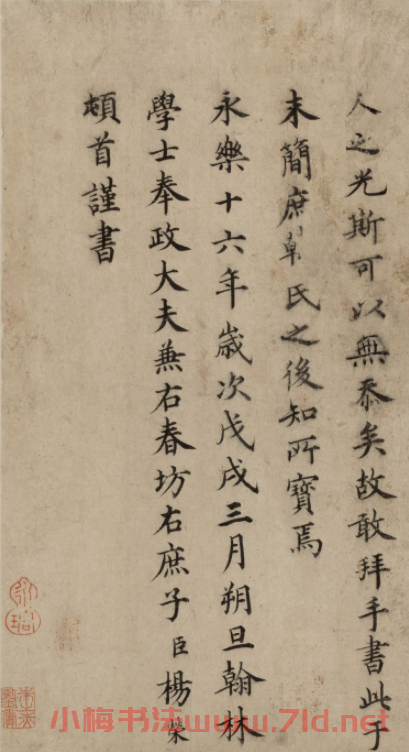 人之光斯可以無忝矣故敢拜手書此于
末簡庶卓氏之後知所寶焉
永樂十六年歲次戊戌三月朔旦翰林
學士奉政大夫兼右春坊右庶子臣楊榮
頓首謹書
小梅书法www.7ld.net